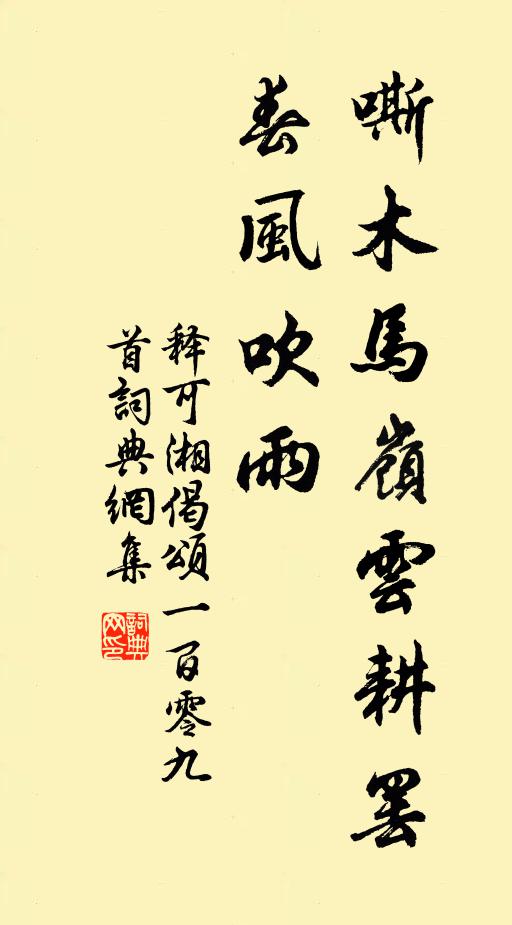 嘶木馬嶺雲耕罢
春風吹雨
释可湘偈頌一百零九
首詞典網集
詞典
网印